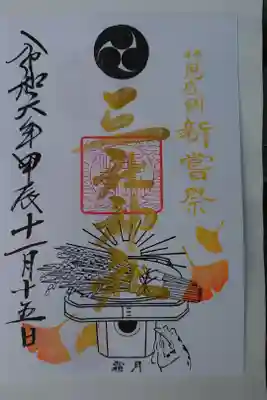 新嘗祭
三社神社
令和六年甲辰十一月十五日
霜月